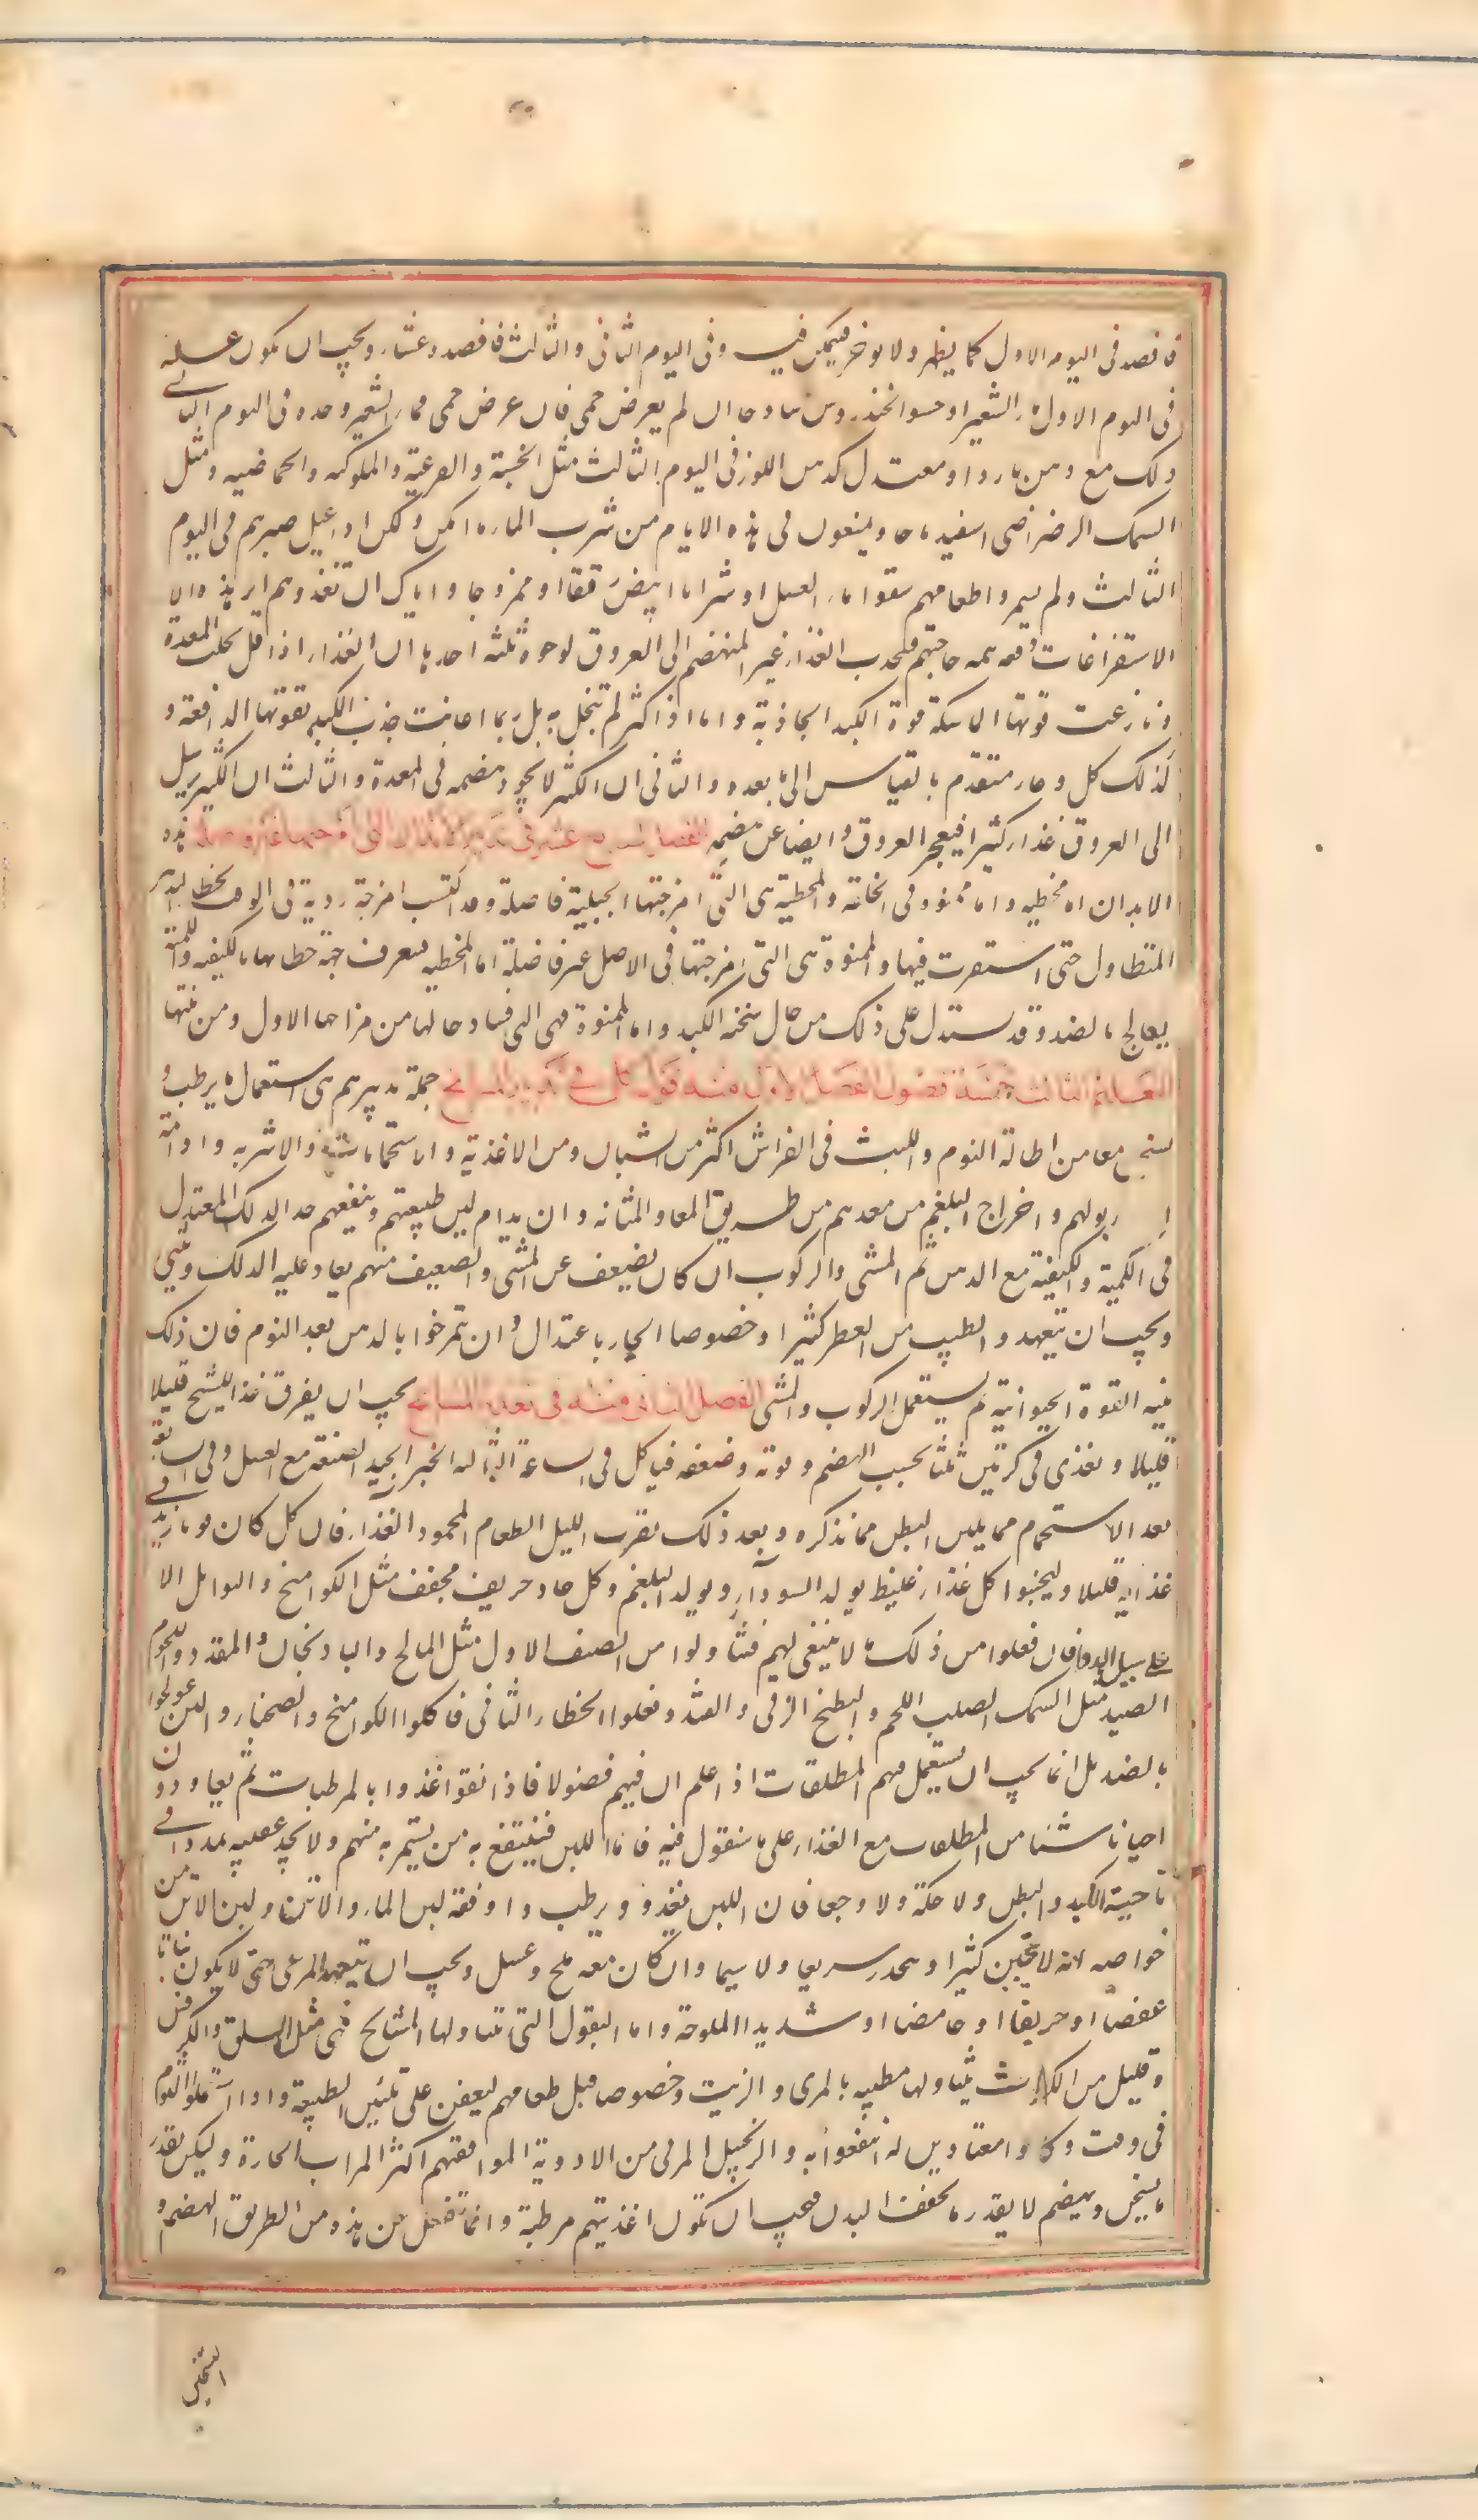 فافصد فى اليوم الاول كما يظهر ولا يوخر فيتمكن فيه وفى اليوم الثانى والثالث فافصد وعشاء ويجب ان يكون غذاءه
فى اليوم الاول ماء الشعير او حسو الخندروس ساذجا ان لم يعرض حمى فان عرض حمى فماء الشعير وحده فى اليوم الثانى
ذلك مع دهن بارد او معتدل كدهن اللوز فى اليوم الثالث مثل الخسية والقرعية والملوكية والحماضية ومثل
السمك الرضراضى اسفيدباجا ويمنعون فى هذه الايام من شرب الماء ما امكن ولكن اذا عيل صبرهم فى اليوم
الثالث ولم يستمروا طعامهم سقوا ماء العسل او شرابا ابيض رقيقا او ممزوجا واياك ان تغذوهم اثر هذه
الاستفراغات دفعة حاجتهم فتجذب الغذاء غير المنهضم الى العروق لوجوه ثلثة احدها ان الغذاء اذا قل بخلت المعدة
ونازعت قوتها الماسكة قوة الكبد الجاذبة واما اذا كثر لم تبخل به بل ربما اعانت جذب الكبد بقوتها الدافعة و
كذلك كل وعاء متقدم بالقياس الى ما بعده والثانى ان الكثير لا يجود هضمه فى المعدة والثالث ان الكثير يرسل
الى العروق غذاء كثيرا فيعجز العروق ايضا عن هضمه الفصل السابع عشر فى تدبير الابدان التى امزجتها غير فاضلة هذه
الابدان اما مخطية واما ممنوة فى الخلقة والمخطية هى التى امزجتها الجبلية فاضلة وقد اكتسب امزجة ردية فى الوقت بخطاء التدبير
المتطاول حتى استقرت فيها والممنوة هى التى امزجتها فى الاصل غير فاضلة اما المخطية فتعرف جهة خطائها بالكيفية والكمية
يعالج بالضد وقد يستدل على ذلك من حال سخنة الكبد واما الممنوة فهى التى فساد حالها من مزاجها الاول ومن سنها
التعليم الثالث خمسة فصول الفصل الاول منه قول كلى فى تدبير المشايخ جملة تدبيرهم هى استعمال ما يرطب و
يسخن معا من اطالة النوم واللبث فى الفراش اكثر من الشبان ومن الاغذية والاستحمامات والاشربة وادامة
ا بولهم واخراج البلغم من معدهم من طريق المعا والمثانة وان يدام لين طبيعتهم وينفعهم جدا الدلك المعتدل
فى الكمية والكيفية مع الدهن ثم المشى والركوب ان كان يضعف عن المشى والضعيف منهم يعاد عليه الدلك ويثنى
ويجب ان يتعهدوا الطيب من العطر كثيرا وخصوصا الحار باعتدال وان يتمرخوا بالدهن بعد النوم فان ذلك
ينبه القوة الحيوانية ثم يستعمل الركوب والمشى الفصل الثانى منه فى تغذية المشايخ يجب ان يفرق غذا الشيخ قليلا
قليلا ويغذى فى كرتين ثلثا بحسب الهضم وقوته وضعفه فياكل فى الساعة الثالثة الخبز الجيد الصنعة مع العسل وفى السابعة
بعد الاستحمام مما يلين البطن مما نذكره وبعد ذلك بقرب الليل الطعام المحمود الغذاء فان كان قويا زيد فى
غذائه قليلا وليجتنبوا كل غذاء غليظ يولد السوداء ويولد البلغم وكل حاد حريف مجفف مثل الكوامخ والتوابل الا
على سبيل الدواء فان فعلوا من ذلك ما لا ينبغى لهم فتناولوا من الصنف الاول مثل المالح والباذنجان والمقدد ولحوم
الصيد مثل السمك الصلب اللحم والبطيخ الرقى والقثد وفعلوا الخطاء الثانى فاكلوا الكوامخ والصحناء واللبن عولجوا
بالضد بل انما يجب ان يستعمل فيهم الملطفات اذا علم ان فيهم فضولا فاذا نقوا غذوا بالمرطبات ثم يعاودون
احيانا شيئا من الملطفات مع الغذاء على ما سنقول فيه فاما اللبن فينتفع به من يستمريه منهم ولا يجد عقيبه تمددا فى
ناحية الكبد والبطن ولا حكة ولا وجعا فان اللبن يغذو ويرطب واوفقه لبن الماعز والاتن ولبن الاتن من
خواصه انه لا يتجبن كثيرا وينحدر سريعا ولا سيما وان كان معه ملح وعسل ويجب ان يتعهد المرعى حتى لا يكون نباتا
عفصا او حريفا او حامضا او شديد الملوحة واما البقول التى تتناولها المشايخ فهى مثل السلق والكرفس
وقليل من الكراث يتناولها مطيبة بالمرى والزيت وخصوصا قبل طعامهم ليعين على تليين الطبيعة واذا استعملوا الثوم
فى وقت وكانوا معتادين له انتفعوا به والزنجبيل المربى من الادوية الموافقتهم اكثر المربات الحارة وليكن بقدر
ما يسخن ويهضم لا بقدر ما يجفف البدن فيجب ان تكون اغذيتهم مرطبة وانما تنفعل عن هذه من الطريق الهضم و
التسخين